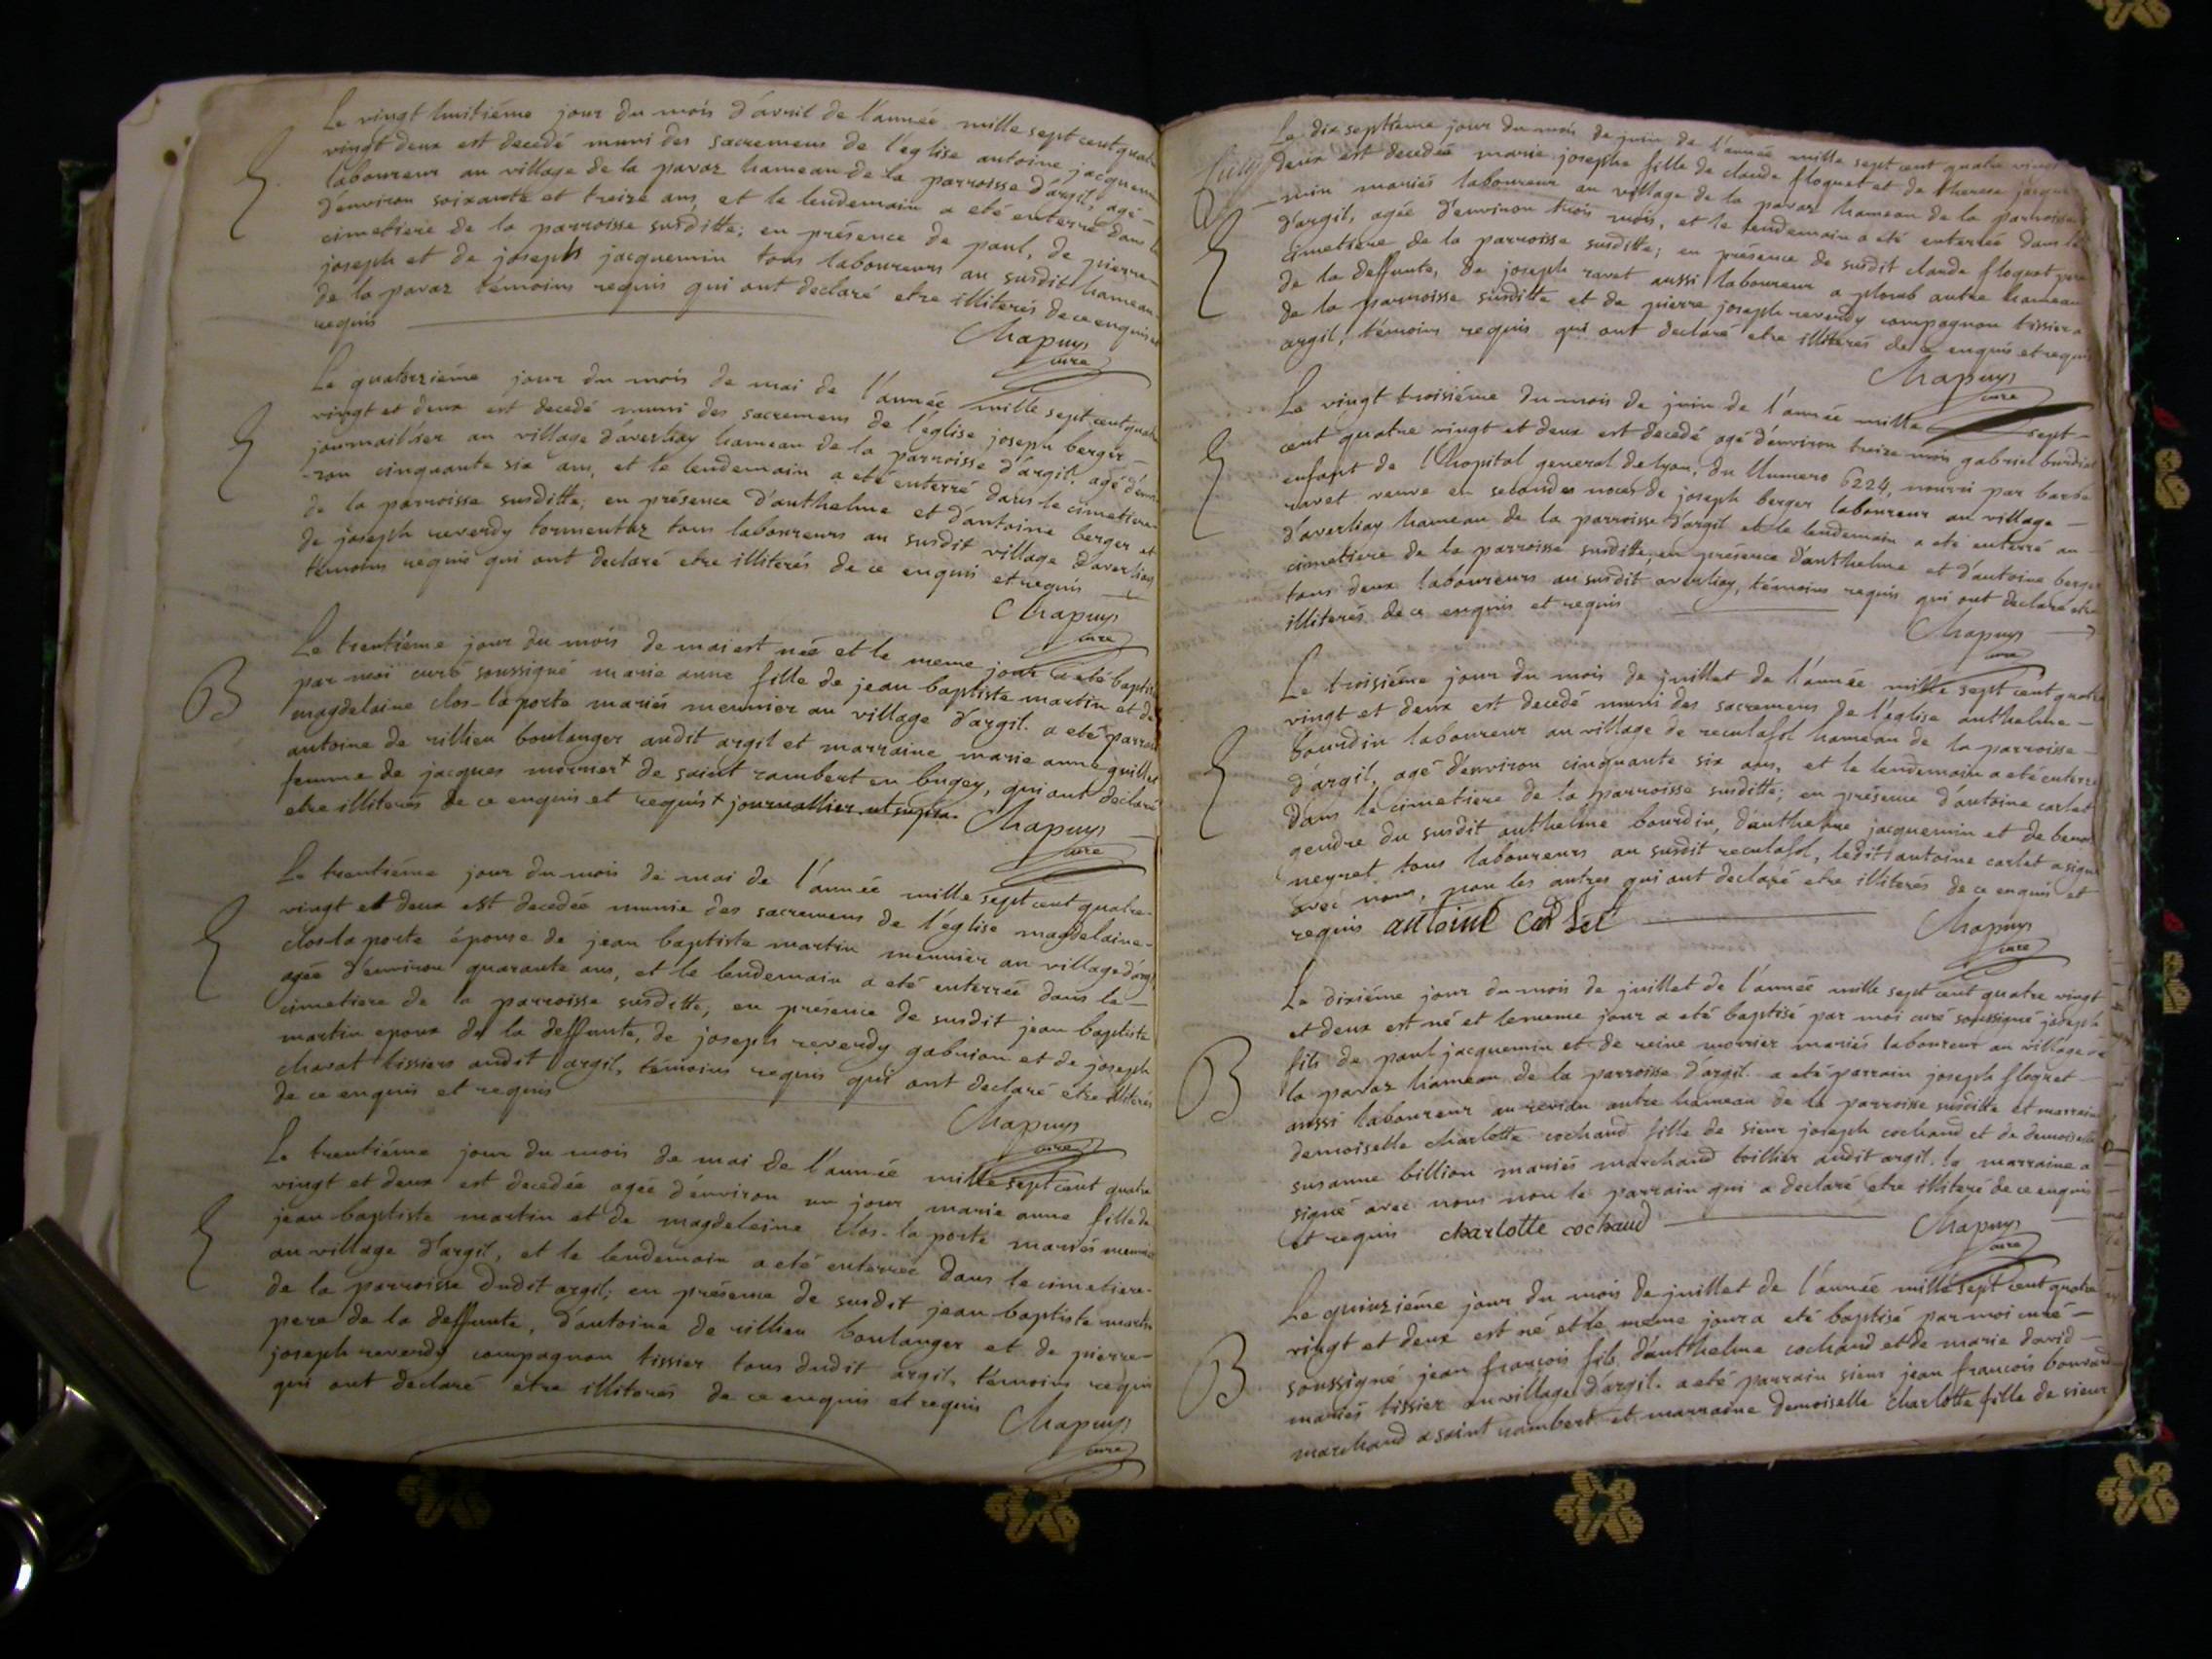 Le vingt huitiéme jour du mois d'avril de l'année mille sept cent quatre
vingt deux est decedé muni des sacremens de l'eglise antoine jacquemin
laboureur au village de la pavaz hameau de la parroisse d'argil, agé
d'environ soixante et treize ans, et le lendemain a eté enterré dans le
cimetiere de la parroisse susditte; en présence de paul, de pierre
joseph et de joseph jacquemin tous laboureurs au susdit hameau
de la pavaz témoins requis qui ont declaré etre illiterés de ce enquis et
requis
Chapuys
curé
Le quatorziéme jour du mois de mai de l'année mille sept cent quatre
vingt et deux est decedé muni des sacremens de l'eglise joseph berger
journaillier au village d'averliaz hameau de la parroisse d'argil. agé d'envi
-ron cinquante six ans, et le lendemain a eté enterré dans le cimetiere
de la parroisse susditte; en présence d'anthelme et d'antoine berger et
de joseph reverdy tormentaz tous laboureurs au susdit village d'averliaz
témoins requis qui ont declaré etre illiterés de ce enquis et requis
Chapuys
curé
Le trentiéme jour du mois de mai est née et le meme jour a eté baptisée
B par moi curé soussigné marie anne fille de jean baptiste martin et de
magdelaine clos-laporte mariés meunier au village d'argil. a eté parrain
antoine de rillieu boulanger audit argil et marraine marie anne guillet
femme de jacques mornier + de saint rambert en bugey, qui ont declaré
etre illiterés de ce enquis et requis + journallier ut supra.
Chapuys
curé
Le trentiéme jour du mois de mai de l'année mille sept cent quatre-
vingt et deux est decedée munie des sacremens de l'eglise magdelaine-
clos-la porte épouse de jean baptiste martin meunier au village d'argil
agée d'environ quarante ans, et le lendemain a eté enterrée dans le
cimetiere de la parroisse susditte; en présence de susdit jean baptiste
martin epoux de la deffunte, de joseph reverdy gabrion et de joseph
chavat tissiers audit argil, témoins requis qui ont declaré etre illiterés
de ce enquis et requis
Chapuys
curé
Le trentiéme jour du mois de mai de l'année mille sept cent quatre
vingt et deux est decedée agée d'environ un jour marie anne fille de
jean baptiste martin et de magdeleine clos-la porte mariés meunier
au village d'argil, et le lendemain a eté enterrée dans le cimetiere
de la parroisse dudit argil; en présence de susdit jean baptiste martin
pere de la deffunte, d'antoine de rillieu boulanger et de pierre-
joseph reverdy compagnon tissier tous dudit argil, témoins requis
qui ont declaré etre illiterés de ce enquis et requis
Chapuys
curé
Le dix septiéme jour du mois de juin de l'année mille sept cent quatre vingt
deux est decedée marie josephe fille de claude floquet et de therese jacque
-min mariés laboureur au village de la pavaz hameau de la parroisse
d'argil, agée d'environ trois mois, et le lendemain a eté enterrée dans le
cimetiere de la parroisse susditte; en présence de susdit claude floquet pere
de la deffunte, de joseph ravet aussi laboureur a plomb autre hameau
de la parroisse susditte et de pierre joseph reverdy compagnon tissier a
argil, témoins requis qui ont declaré etre illiterés de ce enquis et requis
Chapuys
curé
Le vingt troisiéme du mois de juin de l'année mille sept-
cent quatre vingt et deux est decedé agé d'environ treize mois gabriel burdin
enfant de l'hopital general de lyon, du Numero 6224, nourri par barbe
ravet veuve en secondes noces de joseph berger laboureur au village
d'averliaz hameau de la parroisse d'argil et le lendemain a eté enterré au
cimetiere de la parroisse susditte, en présence d'anthelme et d'antoine berger
tous deux laboureurs au susdit averliaz, témoins requis qui ont declaré etre
illiterés de ce enquis et requis
Chapuys
curé
Le troisiéme jour du mois de juillet de l'année mille sept cent quatre
vingt et deux est decedé muni des sacremens de l'eglise anthelme-
bourdin laboureur au village de reculafol hameau de la parroisse
d'argil, agé d'environ cinquante six ans, et le lendemain a eté enterré
dans le cimetiere de la parroisse susditte; en présence d'antoine carlet
gendre du susdit anthelme bourdin, d'anthelme jacquemin et de benoit
neyret tous laboureurs au susdit reculafol, ledit antoine carlet a signé
avec nous, non les autres qui ont declaré etre illiterés de ce enquis et
requis antoine carlet
Chapuys
curé
Le dixiéme jour du mois de juillet de l'année mille sept cent quatre vingt
et deux est né et le meme jour a eté baptisé par moi curé soussigné joseph
B fils de paul jacquemin et de reine mornier mariés laboureur au village de
la pavaz hameau de la parroisse d'argil. a eté parrain joseph floquet
aussi laboureur au revion autre hameau de la parroisse susditte et marraine
demoiselle charlotte cochaud fille de sieur joseph cochaud et de demoiselle
susanne billion mariés marchand toillier audit argil. la marraine a
signé avec nous non le parrain qui a declaré etre illiteré de ce enquis
et requis charlotte cochaud
Chapuys
curé
Le quinziéme jour du mois de juillet de l'année mille sept cent quatre
vingt et deux est né et le meme jour a eté baptisé par moi curé
B soussigné jean françois fils d'anthelme cochaud et de marie david
mariés tissier au village d'argil. a eté parrain sieur jean françois bonvard
marchand a saint rambert et marraine demoiselle charlotte fille de sieur